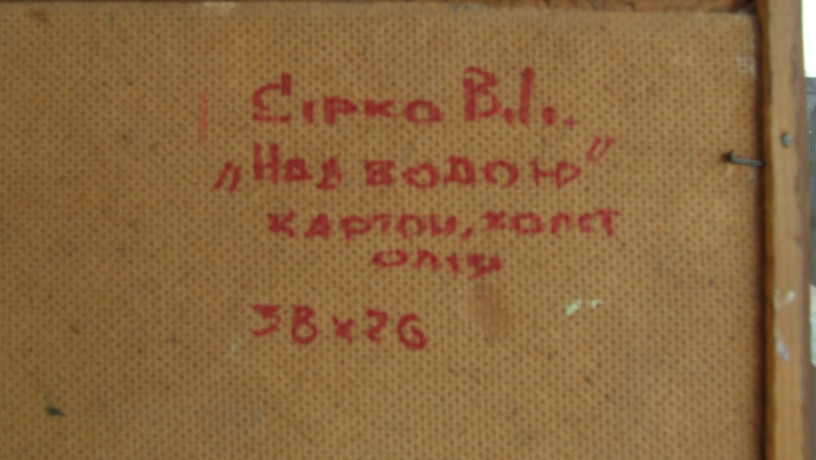 Сірко В.І.
„Над водою"
картон, холст
олія
38х26